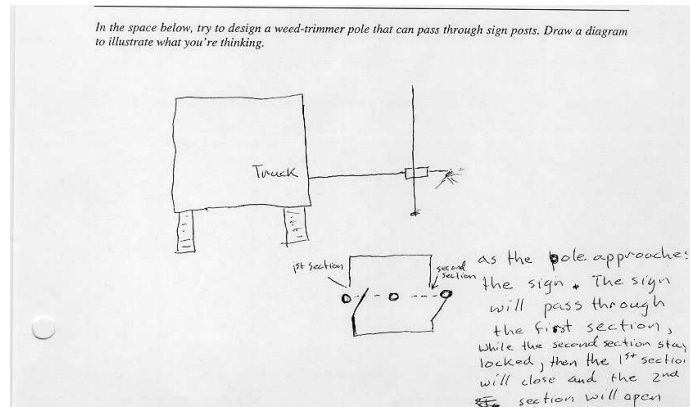 In the space below, try to design a weed-trimmer pole that can pass through sign posts. Draw a diagram
to illustrate what you're thinking.
Truck
1st section
second
section
as the pole approaches
the sign. The sign
will pass through
the first section,
while the second section stay
locked, then the 1st sectio
will close and the 2nd
section will open